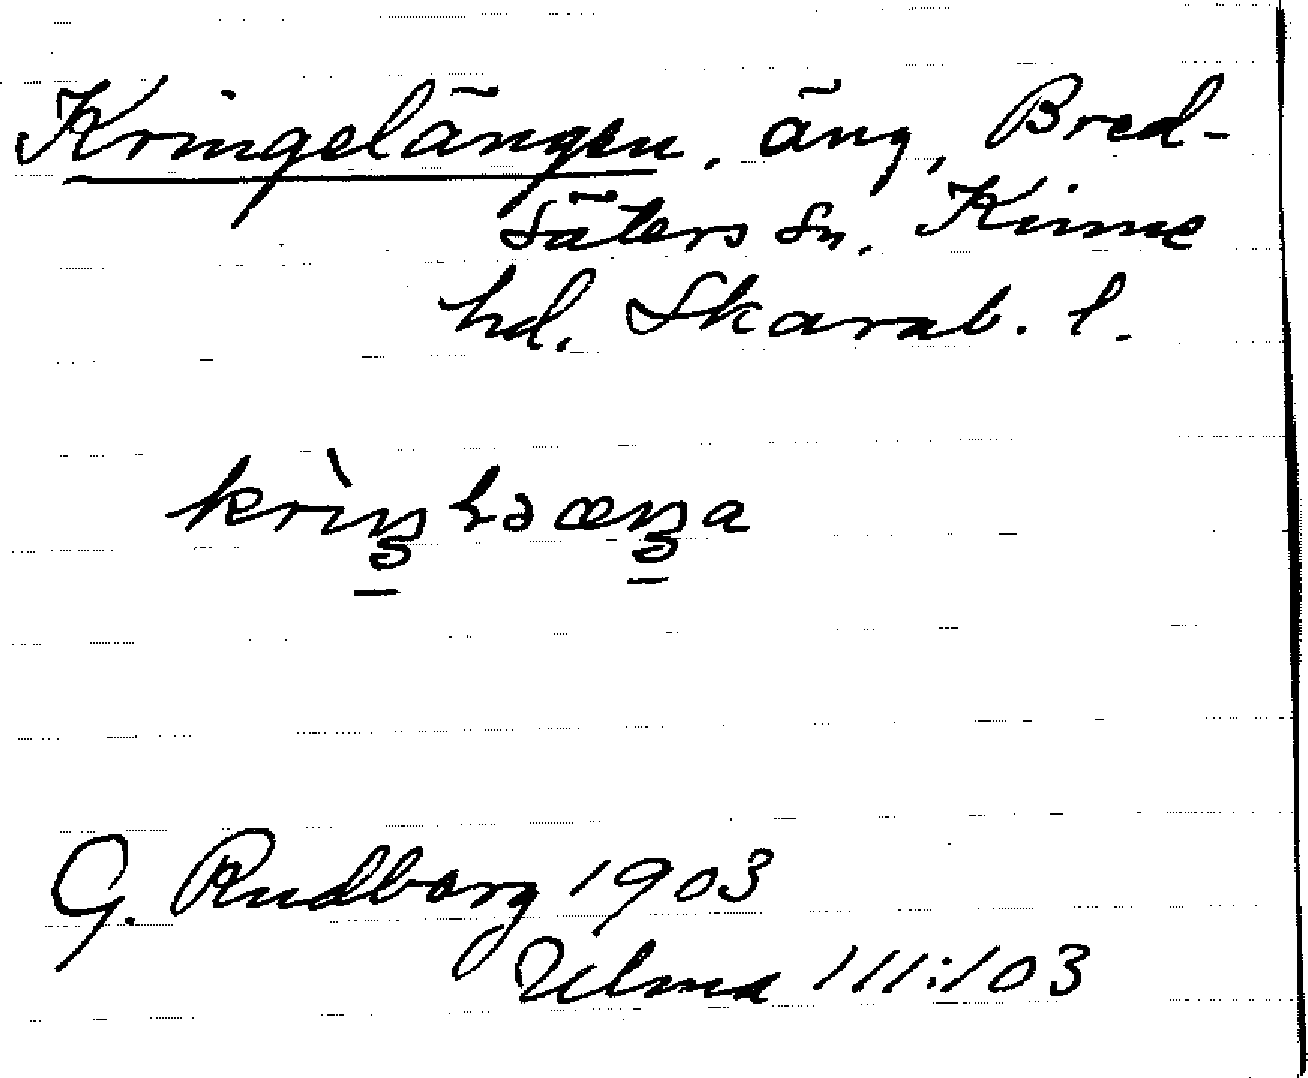 Kringelängen, äng, Bred-
säters sn. Kinne
hd. Skarab. l.
G. Rudberg 1903
Ulma 111:103